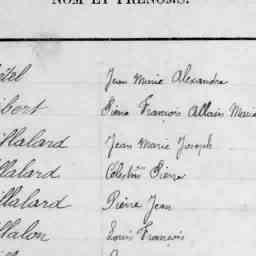 NOM ET PRÉNOMS.
Jean Marie Alexandre
bert Pierre François Allain Marie
allard Jean Marie Joseph
allard Célestin Pierre
allard Pierre Jean
allon Louis François